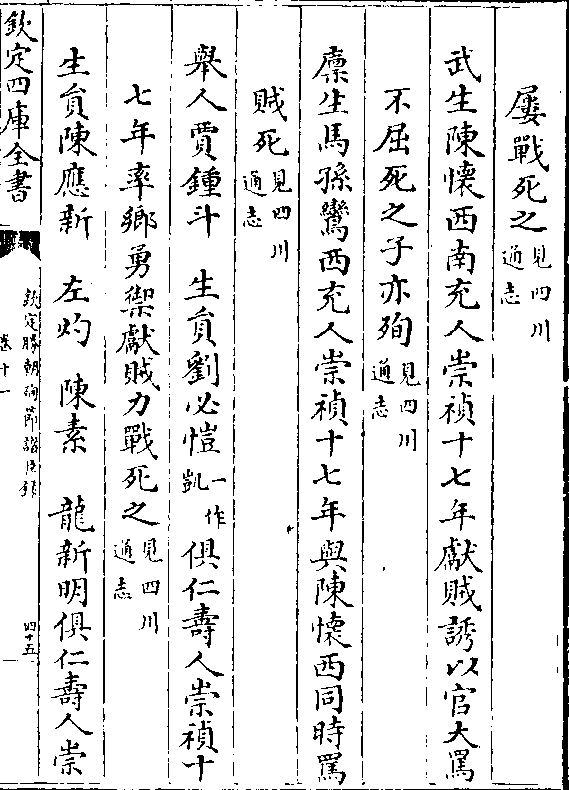 屢戰死之見四川通志
武生陳懷西南充人崇禎十七年獻賊誘以官大罵
不屈死之子亦殉見四川通志
廪生馬孫鸞西充人崇禎十七年與陳懷西同時罵
賊死見四川通志
舉人賈鍾斗　生員劉必愷一作凱俱仁壽人崇禎十
七年率鄉勇禦獻賊力戰死之見四川通志
生員陳應新　左灼　陳素　龍新明俱仁壽人崇
欽定四庫全書
欽定勝朝殉節諸臣錄
卷十一
四十五